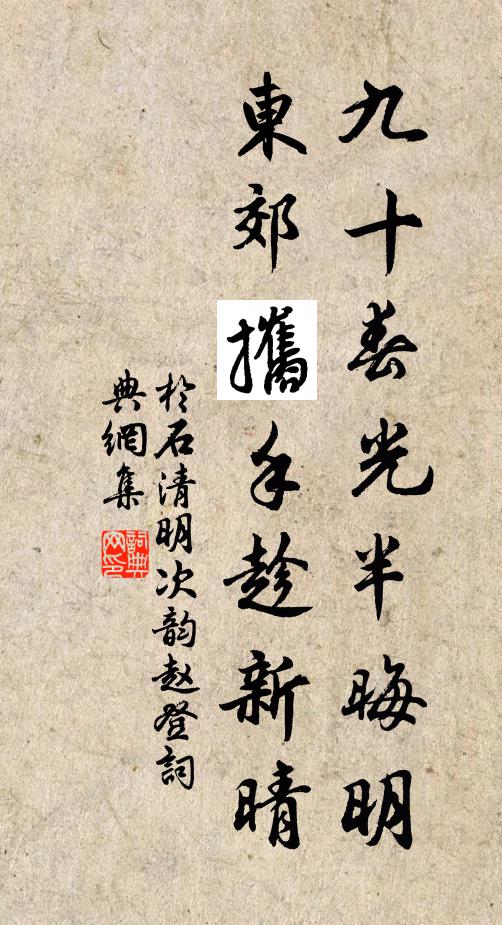 九十春光半晦明
東郊攜手趁新晴
於石清明次韵赵登詞
典網集
詞典
网印